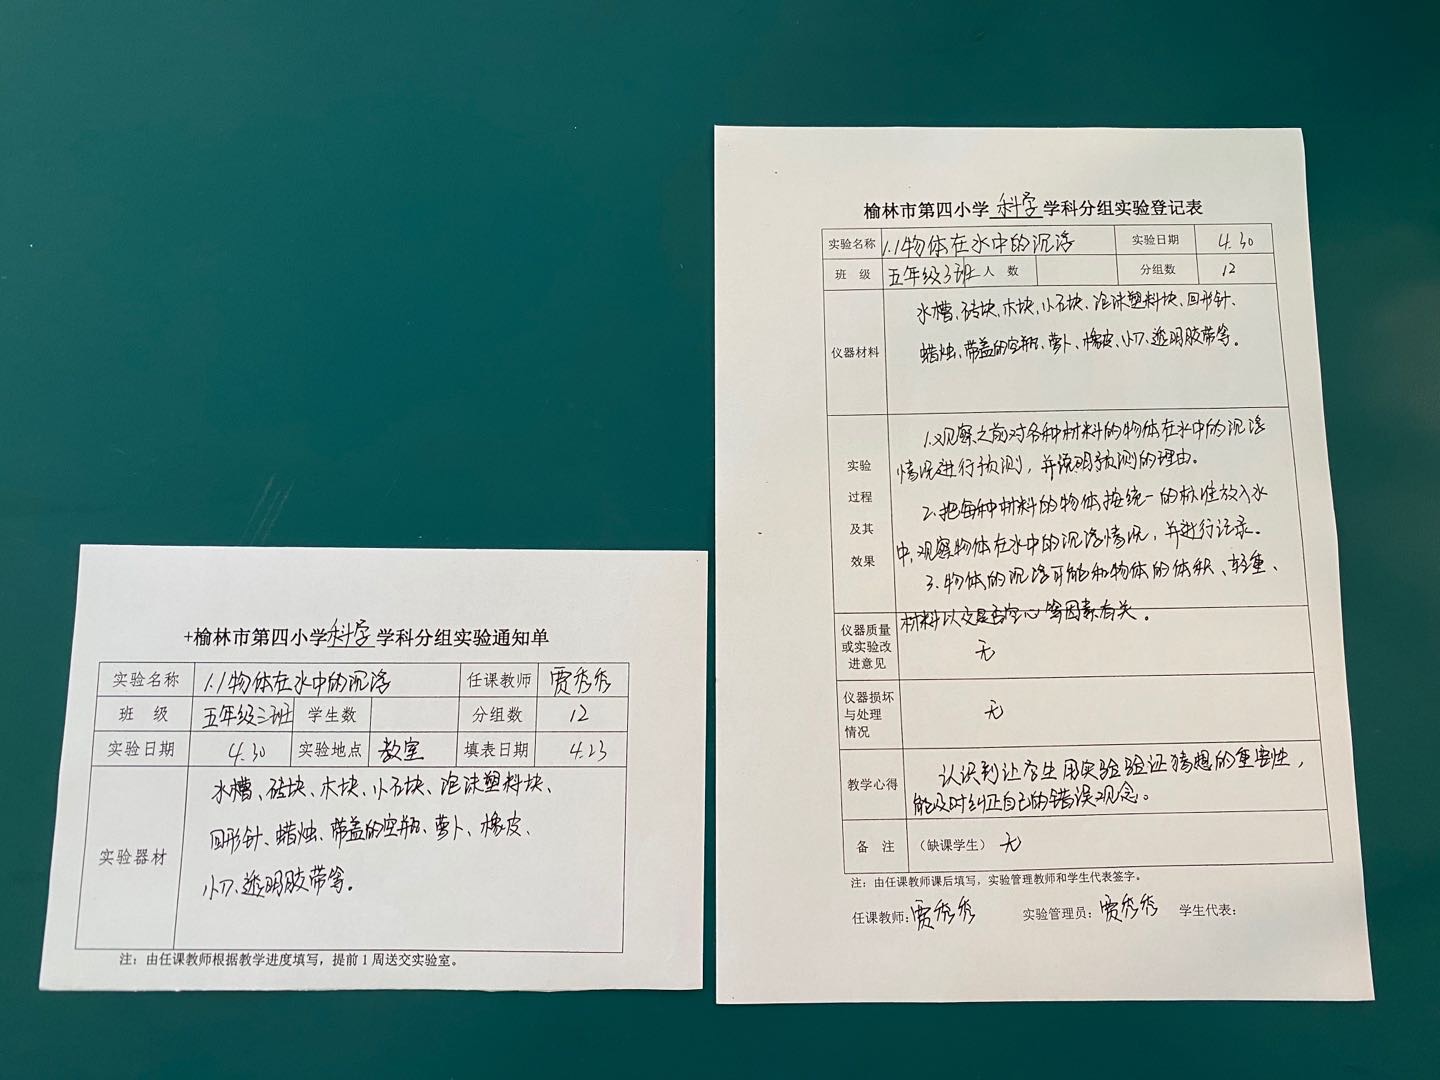 +榆林市第四小学科学学科分组实验通知单
实验名称 1.1物体在水中的沉浮 任课教师 贾秀秀
班 级 五年级三班 学生数 分组数 12
实验日期 4.30 实验地点 教室 填表日期 4.23
实验器材
水槽、砖块、木块、小石块、泡沫塑料块、
回形针、蜡烛、带盖的空瓶、萝卜、橡皮、
小刀、透明胶带等。
注：由任课教师根据教学进度填写，提前1周送交实验室。
榆林市第四小学科学学科分组实验登记表
实验名称 1.1物体在水中的沉浮 实验日期 4.30
班 级 五年级3班 人 数 分组数 12
仪器材料
水槽、砖块、木块、小石块、泡沫塑料块、回形针、
蜡烛、带盖的空瓶、萝卜、橡皮、小刀、透明胶带等。
实验
过程
及其
效果
1.观察之前对各种材料的物体在水中的沉浮
情况进行预测，并说明预测的理由。
2.把每种材料的物体按统一的标准放入水
中，观察物体在水中的沉浮情况，并进行记录。
3.物体的沉浮可能和物体的体积、轻重、
材料以及是否空心等因素有关。
仪器质量
或实验改
进意见
无
仪器损坏
与处理
情况
无
教学心得
认识到让学生用实验验证猜想的重要性，
能及时纠正自己的错误观念。
备 注 （缺课学生） 无
注：由任课教师课后填写，实验管理教师和学生代表签字。
任课教师：贾秀秀 实验管理员：贾秀秀 学生代表：